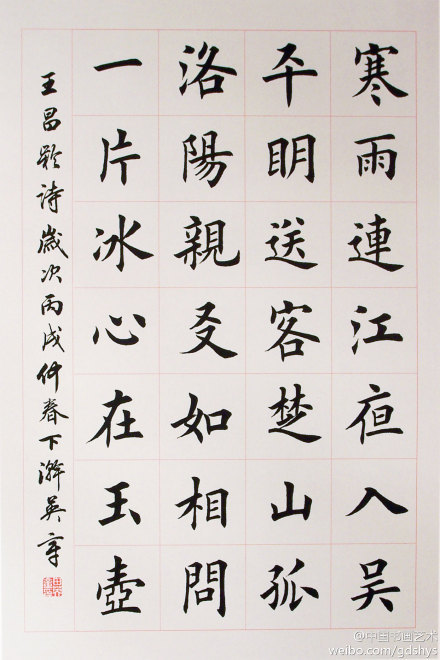 寒雨連江夜入吴
平明送客楚山孤
洛陽親友如相問
一片冰心在玉壺
王昌齡詩歲次丙戌仲春下澣吴
@中国书画艺术
weibo.com/gdshys